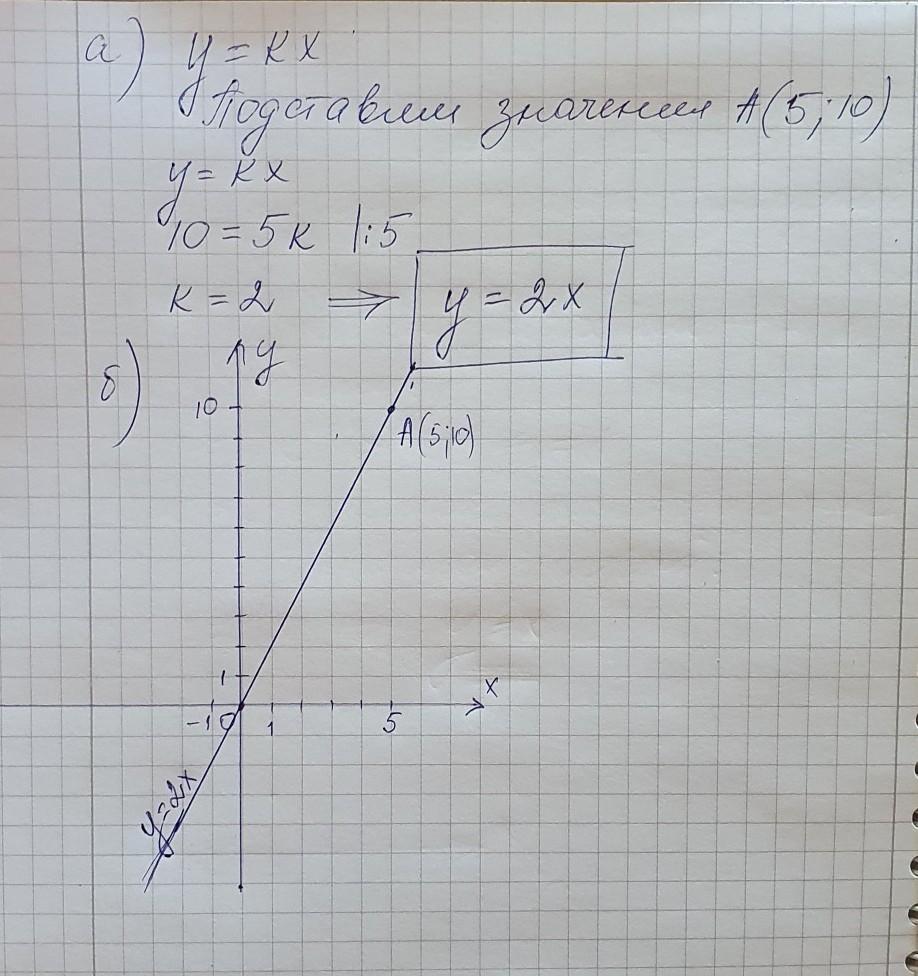 а) y = kx
Подставим значения А(5;10)
y = kx
10 = 5k |:5
k = 2 ⟹ y = 2x
б) y
10
А(5;10)
1
x
-1 0 1 5
y=2x